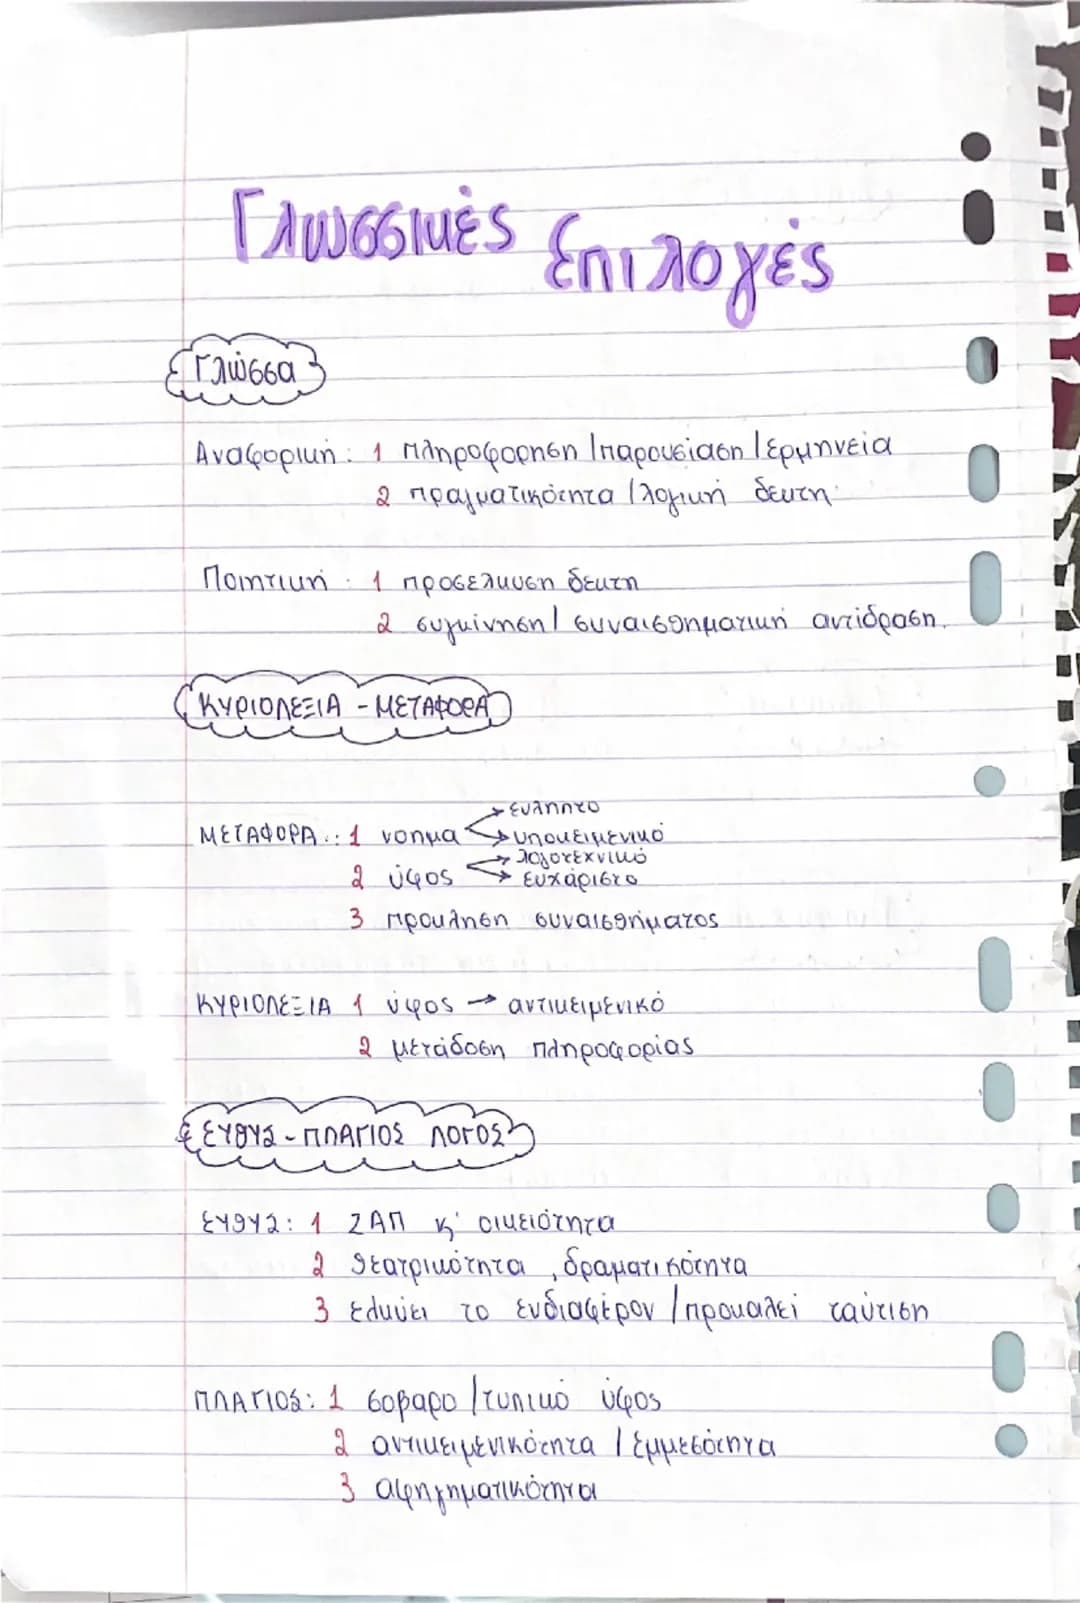 Γλωσσικές Επιλογές
Γλώσσα
Αναφορική: 1 πληροφορηση / παρουσίαση / ερμηνεία
2 πραγματικότητα / λογική δεκτη
Ποιητική: 1 προσελκυση δεκτη
2 συγκίνηση / συναισθηματική αντίδραση.
ΚΥΡΙΟΛΕΞΙΑ - ΜΕΤΑΦΟΡΑ
→ ευληπτο
ΜΕΤΑΦΟΡΑ.: 1 νοημα → υποκειμενικό
→ λογοτεχνικό
2 ύφος → ευχάριστο
3 προκληση συναισθήματος
ΚΥΡΙΟΛΕΞΙΑ 1 ύφος → αντικειμενικό
2 μετάδοση πληροφορίας
ΕΥΘΥΣ - ΠΛΑΓΙΟΣ ΛΟΓΟΣ
ΕΥΘΥΣ: 1 ΖΑΠ κ' οικειότητα
2 θεατρικότητα, δραματικότητα
3 ελκύει το ενδιαφέρον / προκαλεί ταύτιση
ΠΛΑΓΙΟΣ: 1 σοβαρο / τυπικό ύφος
2 αντικειμενικότητα / εμμεσότητα
3 αφηγηματικότητα